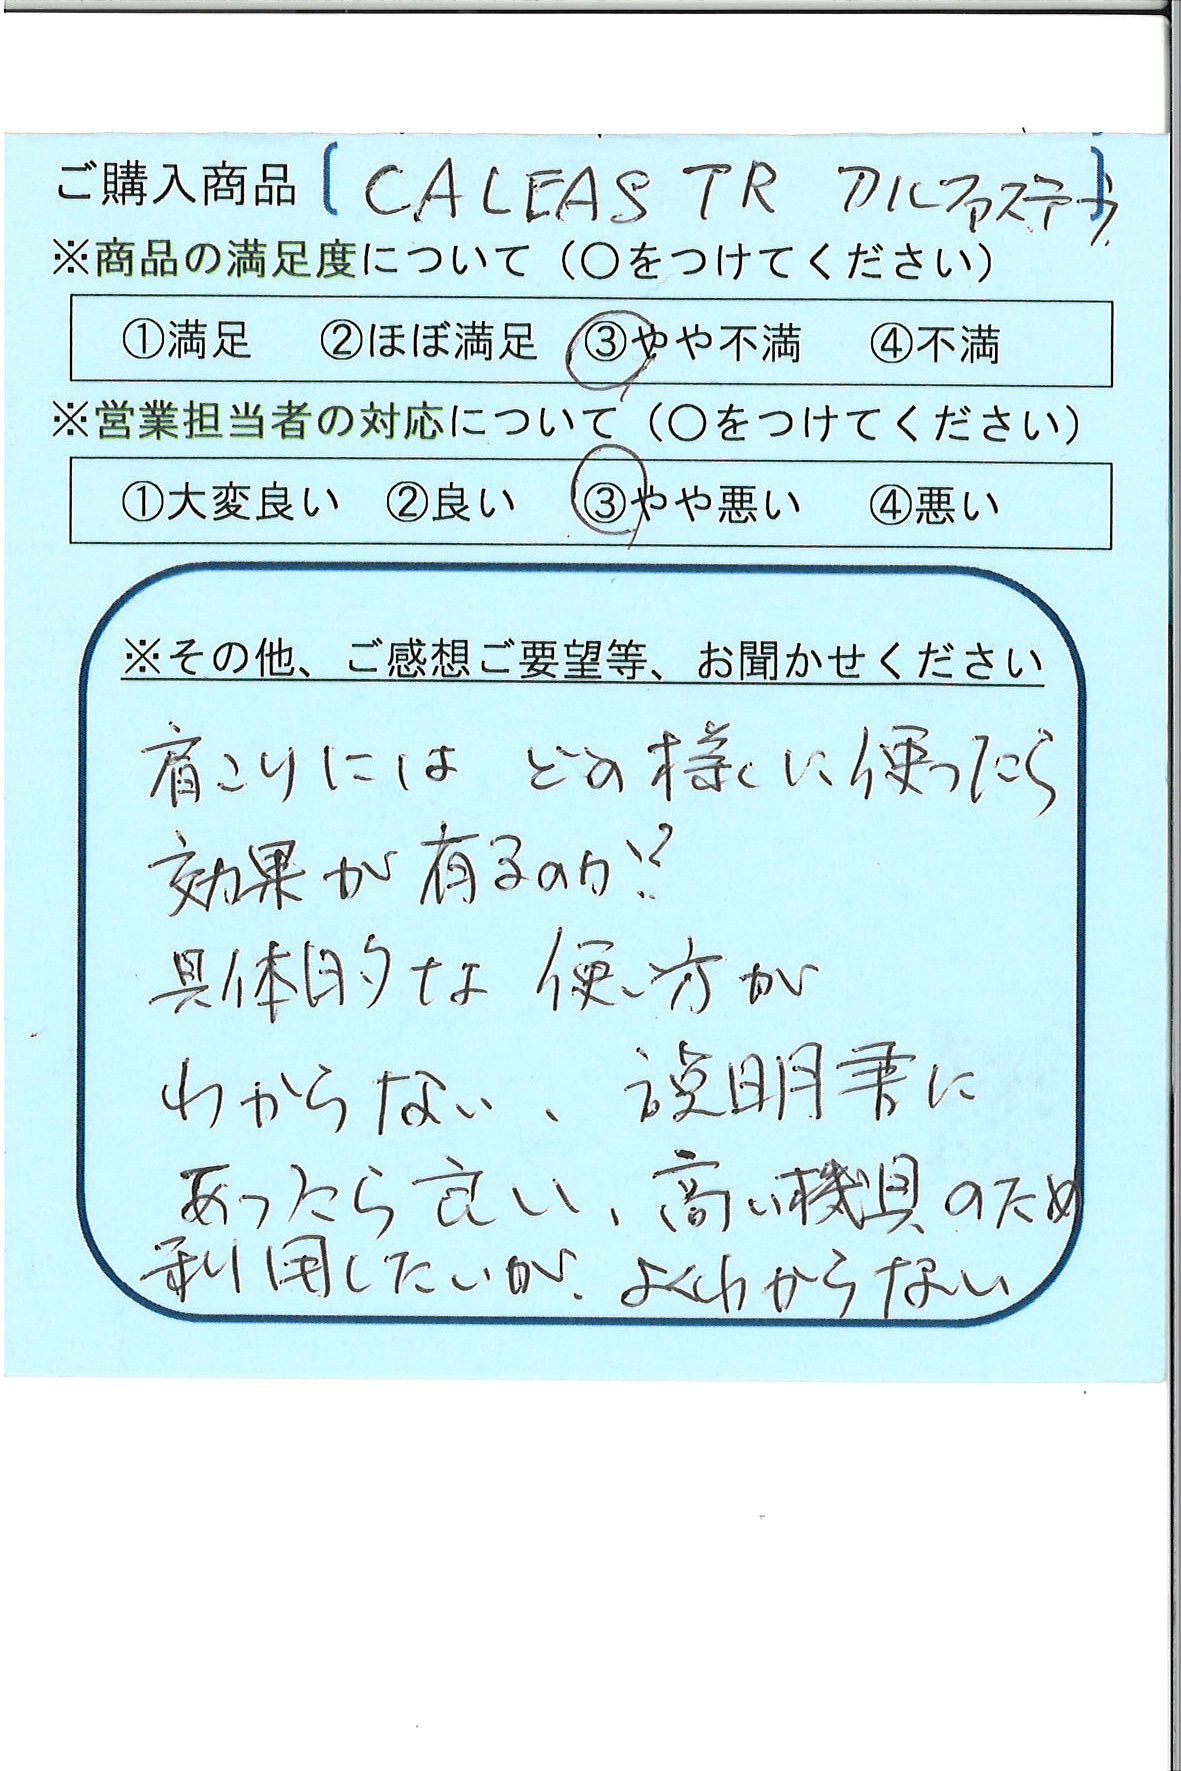 ご購入商品 [ CALEAS TR アルファステラ ]
※商品の満足度について（〇をつけてください）
①満足 ②ほぼ満足 ③やや不満 ④不満
※営業担当者の対応について（〇をつけてください）
①大変良い ②良い ③やや悪い ④悪い
※その他、ご感想ご要望等、お聞かせください
肩こりには どの様に使ったら
効果が有るのか?
具体的な 使い方が
わからない、説明書に
あったら良い、高い機具のため
利用したいが、よくわからない